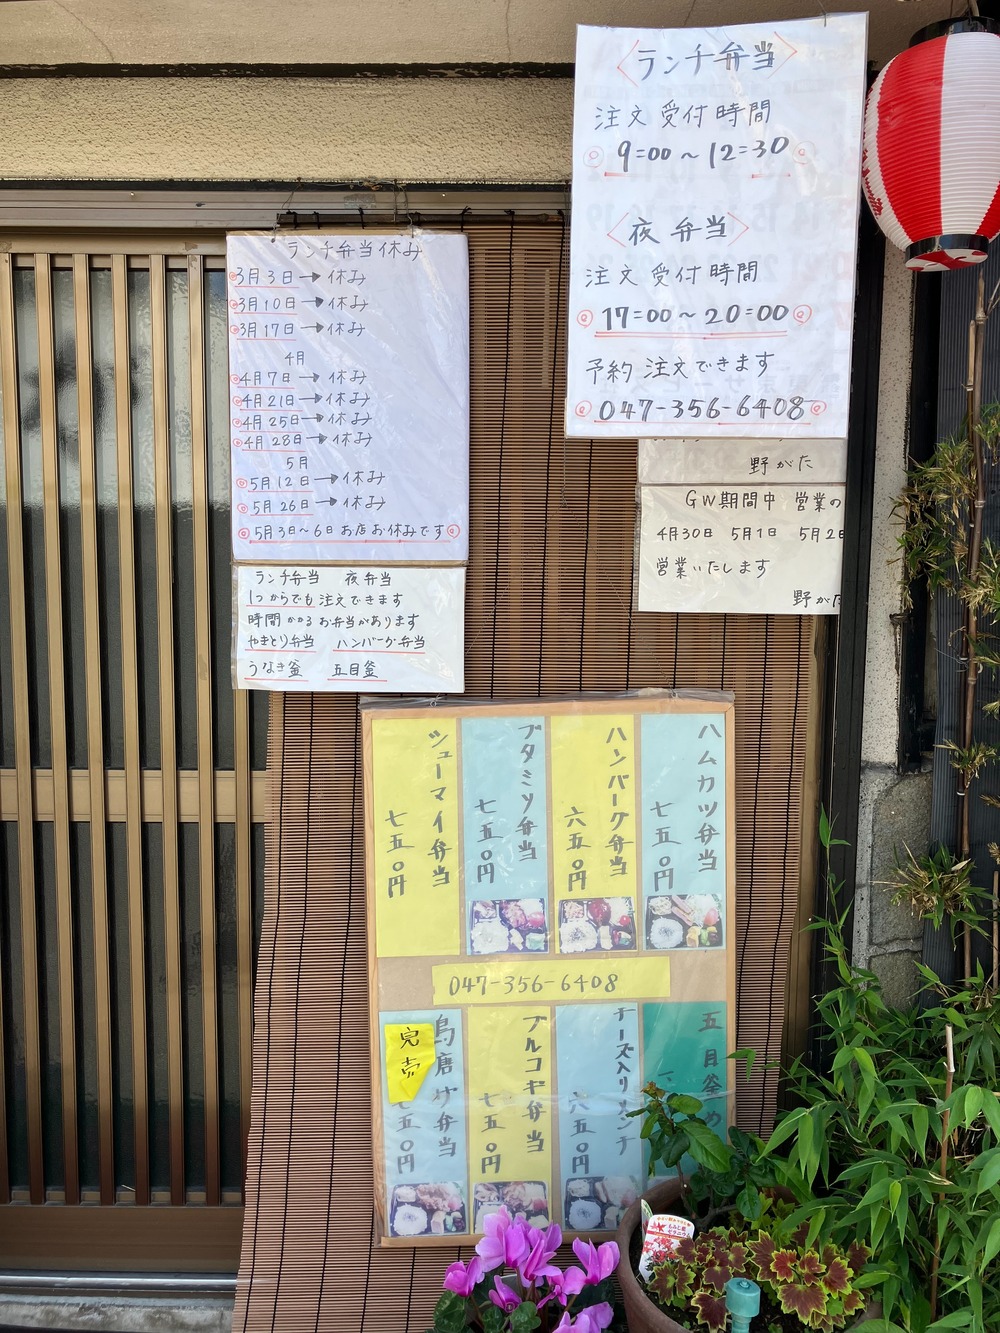 〈ランチ弁当〉
注文受付時間
9=00～12=30
〈夜弁当〉
注文受付時間
17=00～20=00
予約注文できます
047-356-6408
野がた
GW期間中 営業の
4月30日 5月1日 5月2日
営業いたします
野がた
ランチ弁当休み
3月3日→休み
3月10日→休み
3月17日→休み
4月
4月7日→休み
4月21日→休み
4月25日→休み
4月28日→休み
5月
5月12日→休み
5月26日→休み
5月3日～6日お店お休みです
ランチ弁当 夜弁当
1つからでも注文できます
時間かかるお弁当があります
やきとり弁当 ハンバーグ弁当
うなき釜 五目釜
ハムカツ弁当
七五〇円
ハンバーグ弁当
六五〇円
ブタミソ弁当
七五〇円
シューマイ弁当
七五〇円
047-356-6408
五目釜め
チーズ入りメンチ
六五〇円
プルコギ弁当
七五〇円
鳥唐げ弁当
七五〇円
完売